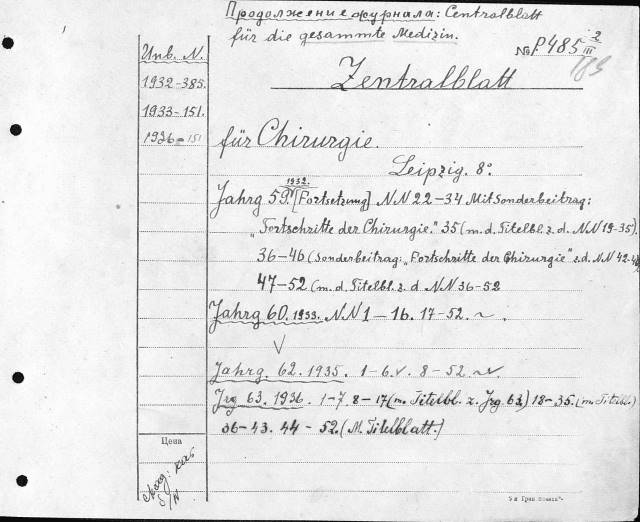 Продолжение журнала: Centralblatt
für die gesammte Medizin.
№ P.485 2/III
183
Unb. N.
1932-385.
1933-151.
1936-151
Zentralblatt
für Chirurgie.
Leipzig. 8°
1932.
Jahrg 59. [Fortsetzung] NN 22-34 Mit Sonderbeitrag:
"Fortschritte der Chirurgie." 35 (m. d. Titelbl. z. d. NN 19-35).
36-46 (Sonderbeitrag: "Fortschritte der Chirurgie" z. d. NN 42-
47-52 (m. d. Titelbl. z. d. NN 36-52
Jahrg 60. 1933. NN 1-16. 17-52. ~ .
V
Jahrg. 62. 1935. 1-6. v. 8-52.
Jrg 63. 1936. 1-7. 8-17 (m. Titelbl. z. Jrg 63) 18-35. (m. Titelbl.)
36-43. 44-52. (M. Titelblatt.)
Цена